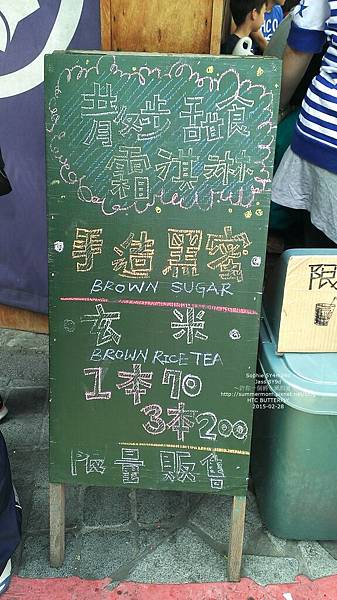 散步甜食
霜淇淋
手造黑蜜
BROWN SUGAR
玄米
BROWN RICE TEA
1本70
3本200
限量販售
限
HTC BUTTERFLY
2015-02-28